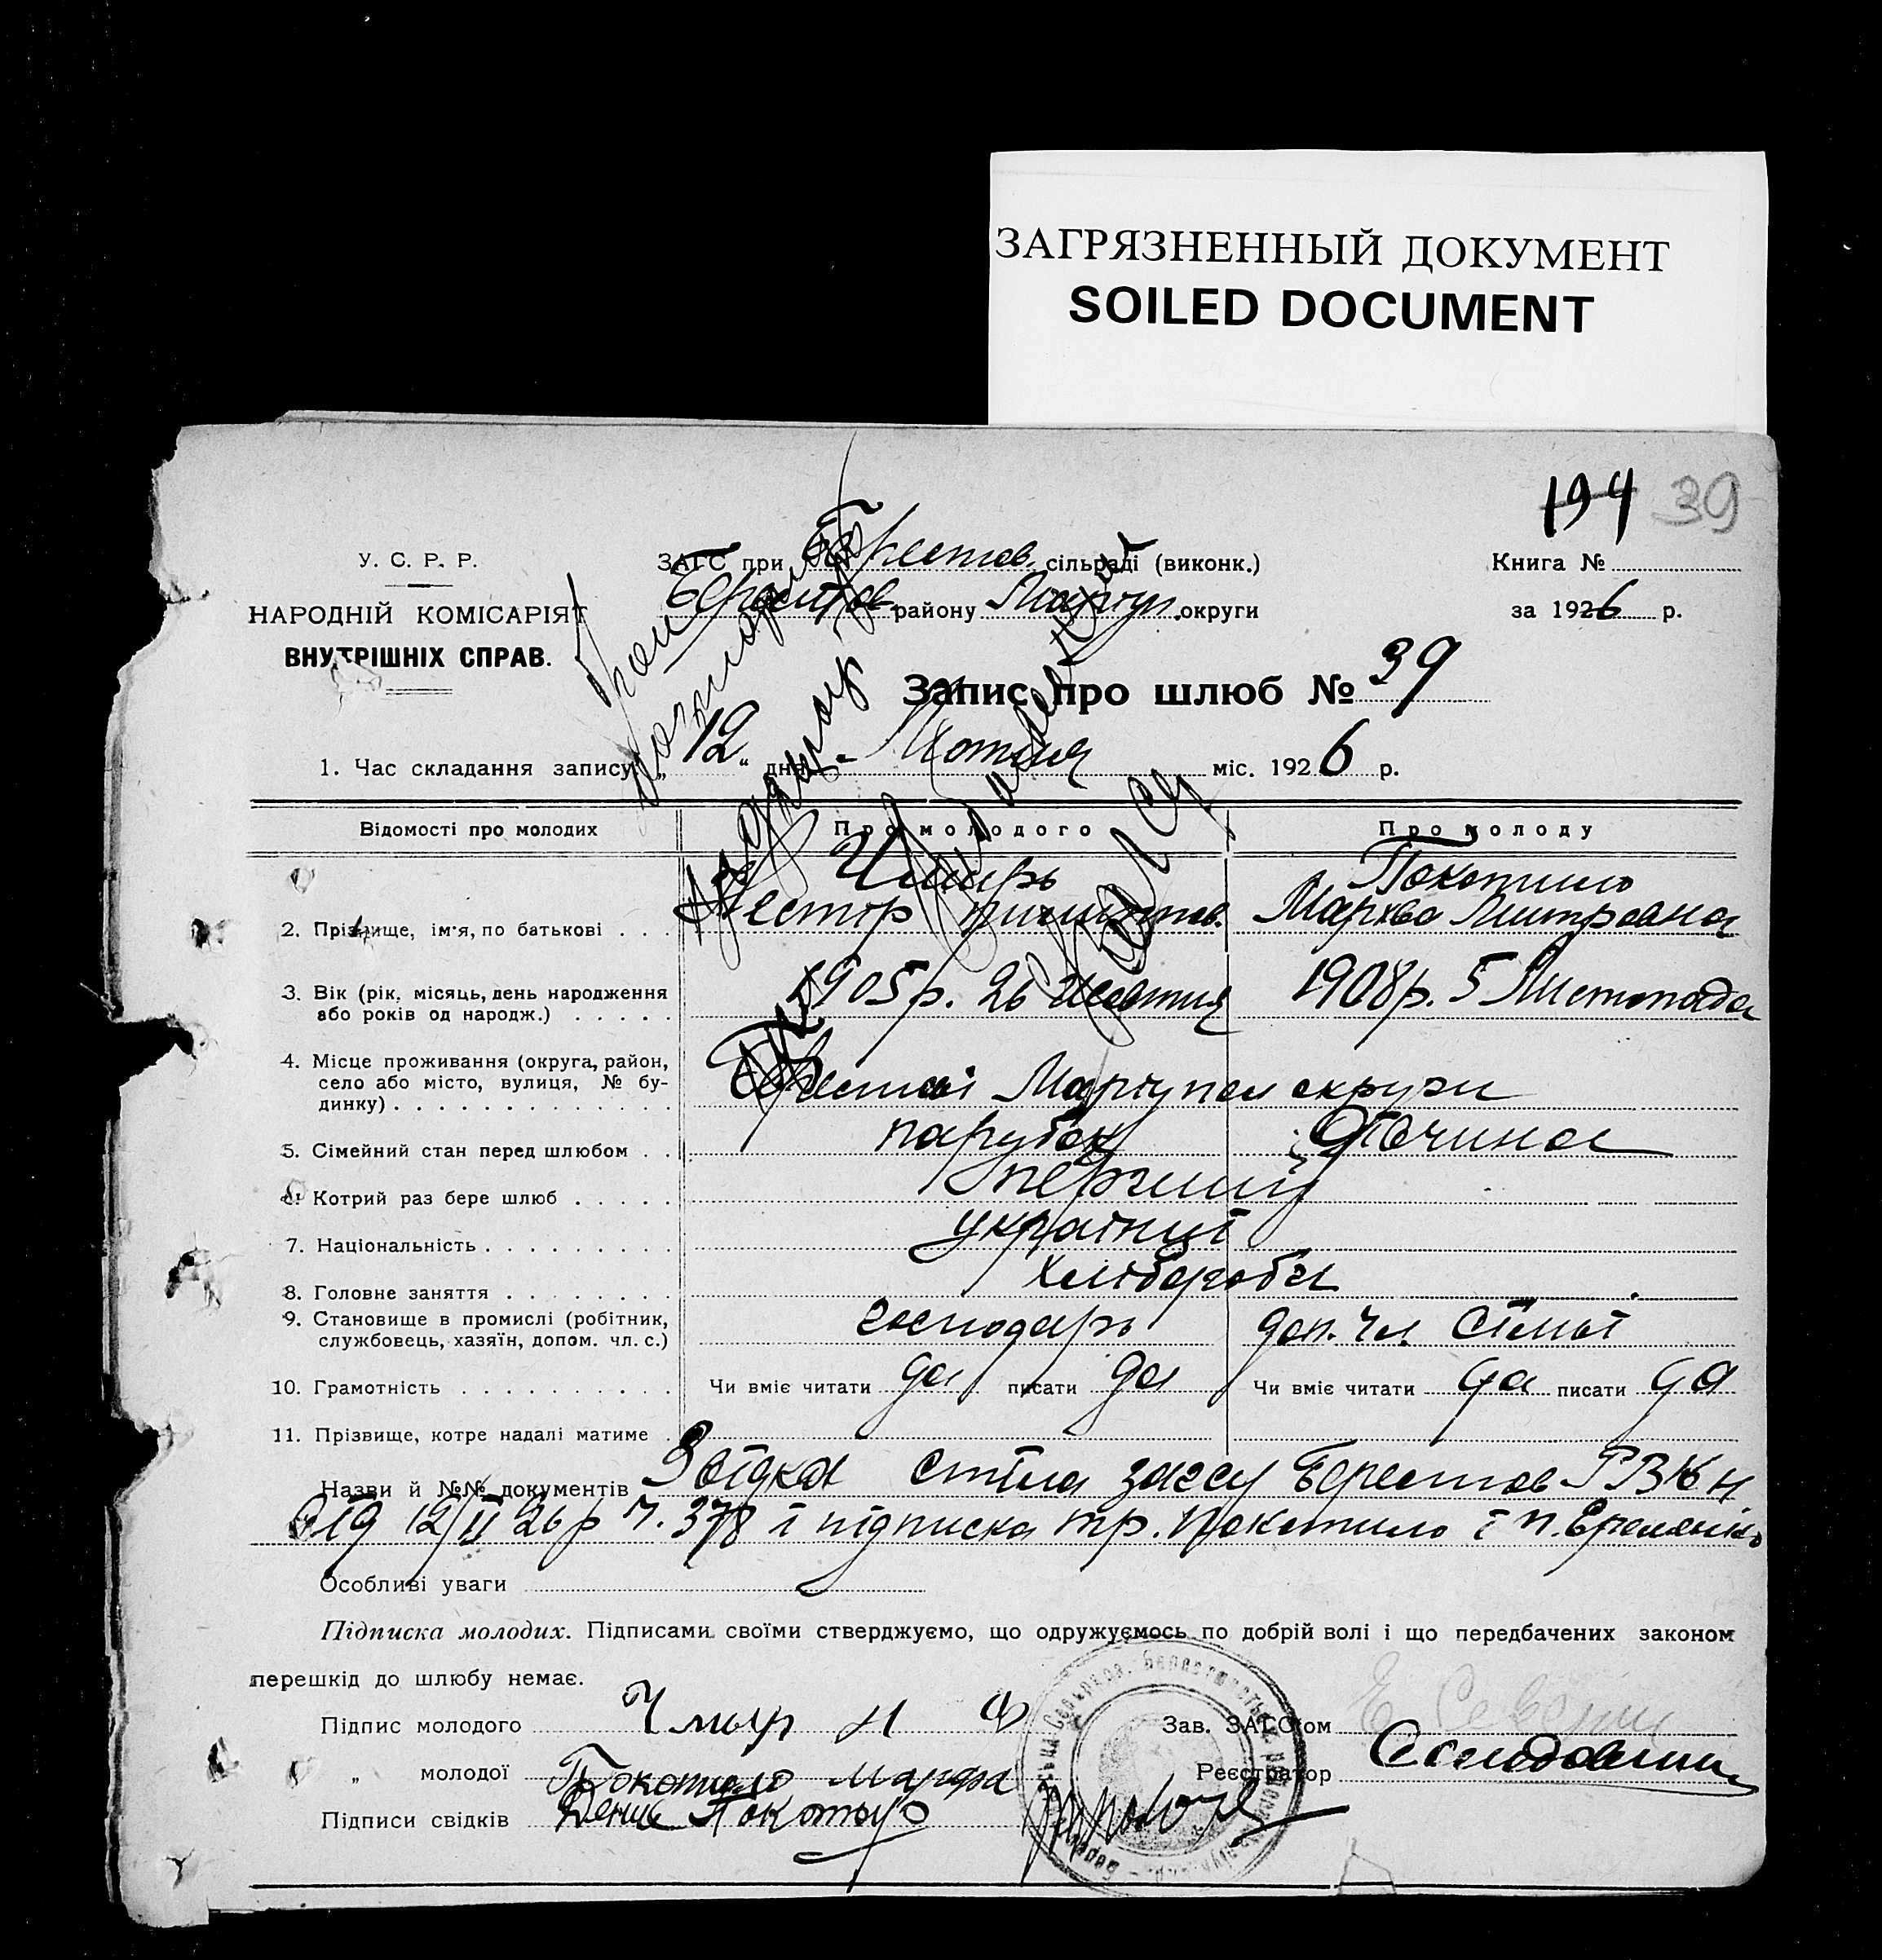 ЗАГРЯЗНЕННЫЙ ДОКУМЕНТ
SOILED DOCUMENT
194 39
У. С. Р. Р.
НАРОДНІЙ КОМІСАРІЯТ
ВНУТРІШНІХ СПРАВ.
ЗАГС при Берестов. сільраді (виконк.)
Берестов. району Маріуп. округи
Книга №
за 1926 р.
Запис про шлюб № 39
1. Час складання запису: „12“ дня Лютня міс. 1926 р.
Відомості про молодих Про молодого Про молоду
2. Прізвище, ім'я, по батькові Чмирь Покотило
Нестор Марква Митровна
3. Вік (рік, місяць, день народження
або років од народж.) 1905 р. 26 Жовтня 1908 р. 5 Листопада
4. Місце проживання (округа, район,
село або місто, вулиця, № бу-
динку) Берестові Маріупол округи
5. Сімейний стан перед шлюбом парубок дівчина
6. Котрий раз бере шлюб перший
7. Національність українці
8. Головне заняття хлібороби
9. Становище в промислі (робітник,
службовець, хазяїн, допом. чл. с.) господарь доп. чл. сімьї
10. Грамотність Чи вміє читати да писати да Чи вміє читати да писати да
11. Прізвище, котре надалі матиме
Назви й №№ документів Звідка стіла загсу Берестов РВК
від 12/II 26 р ч. 378 і підписка гр. Покотило і П. Еременко
Особливі уваги
Підписка молодих. Підписами своїми стверджуємо, що одружуємось по добрій волі і що передбачених законом
перешкід до шлюбу немає.
Підпис молодого Чмир Н Ф
Зав. ЗАГС'ом
„ молодої Покотило Марфа
Реєстратор
Підписи свідків Денис Покотыло